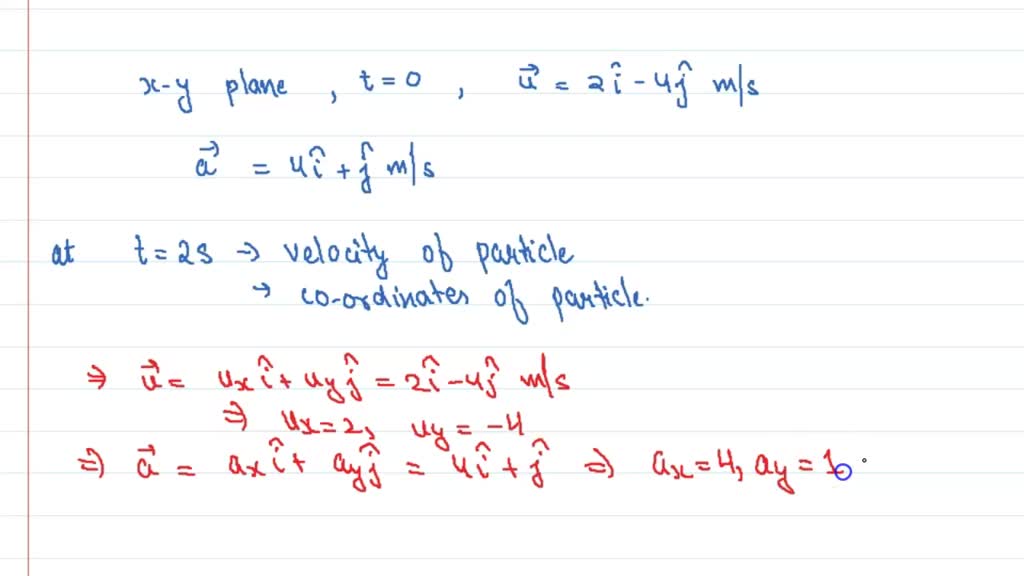 x-y plane , t = 0 , u⃗ = 2î - 4ĵ m/s
a⃗ = 4î + ĵ m/s
at t = 2s → velocity of particle
→ co-ordinates of particle.
⇒ u⃗ = uxî + uyĵ = 2î - 4ĵ m/s
⇒ ux = 2, uy = -4
⇒ a⃗ = axî + ayĵ = 4î + ĵ ⇒ ax = 4, ay = 1